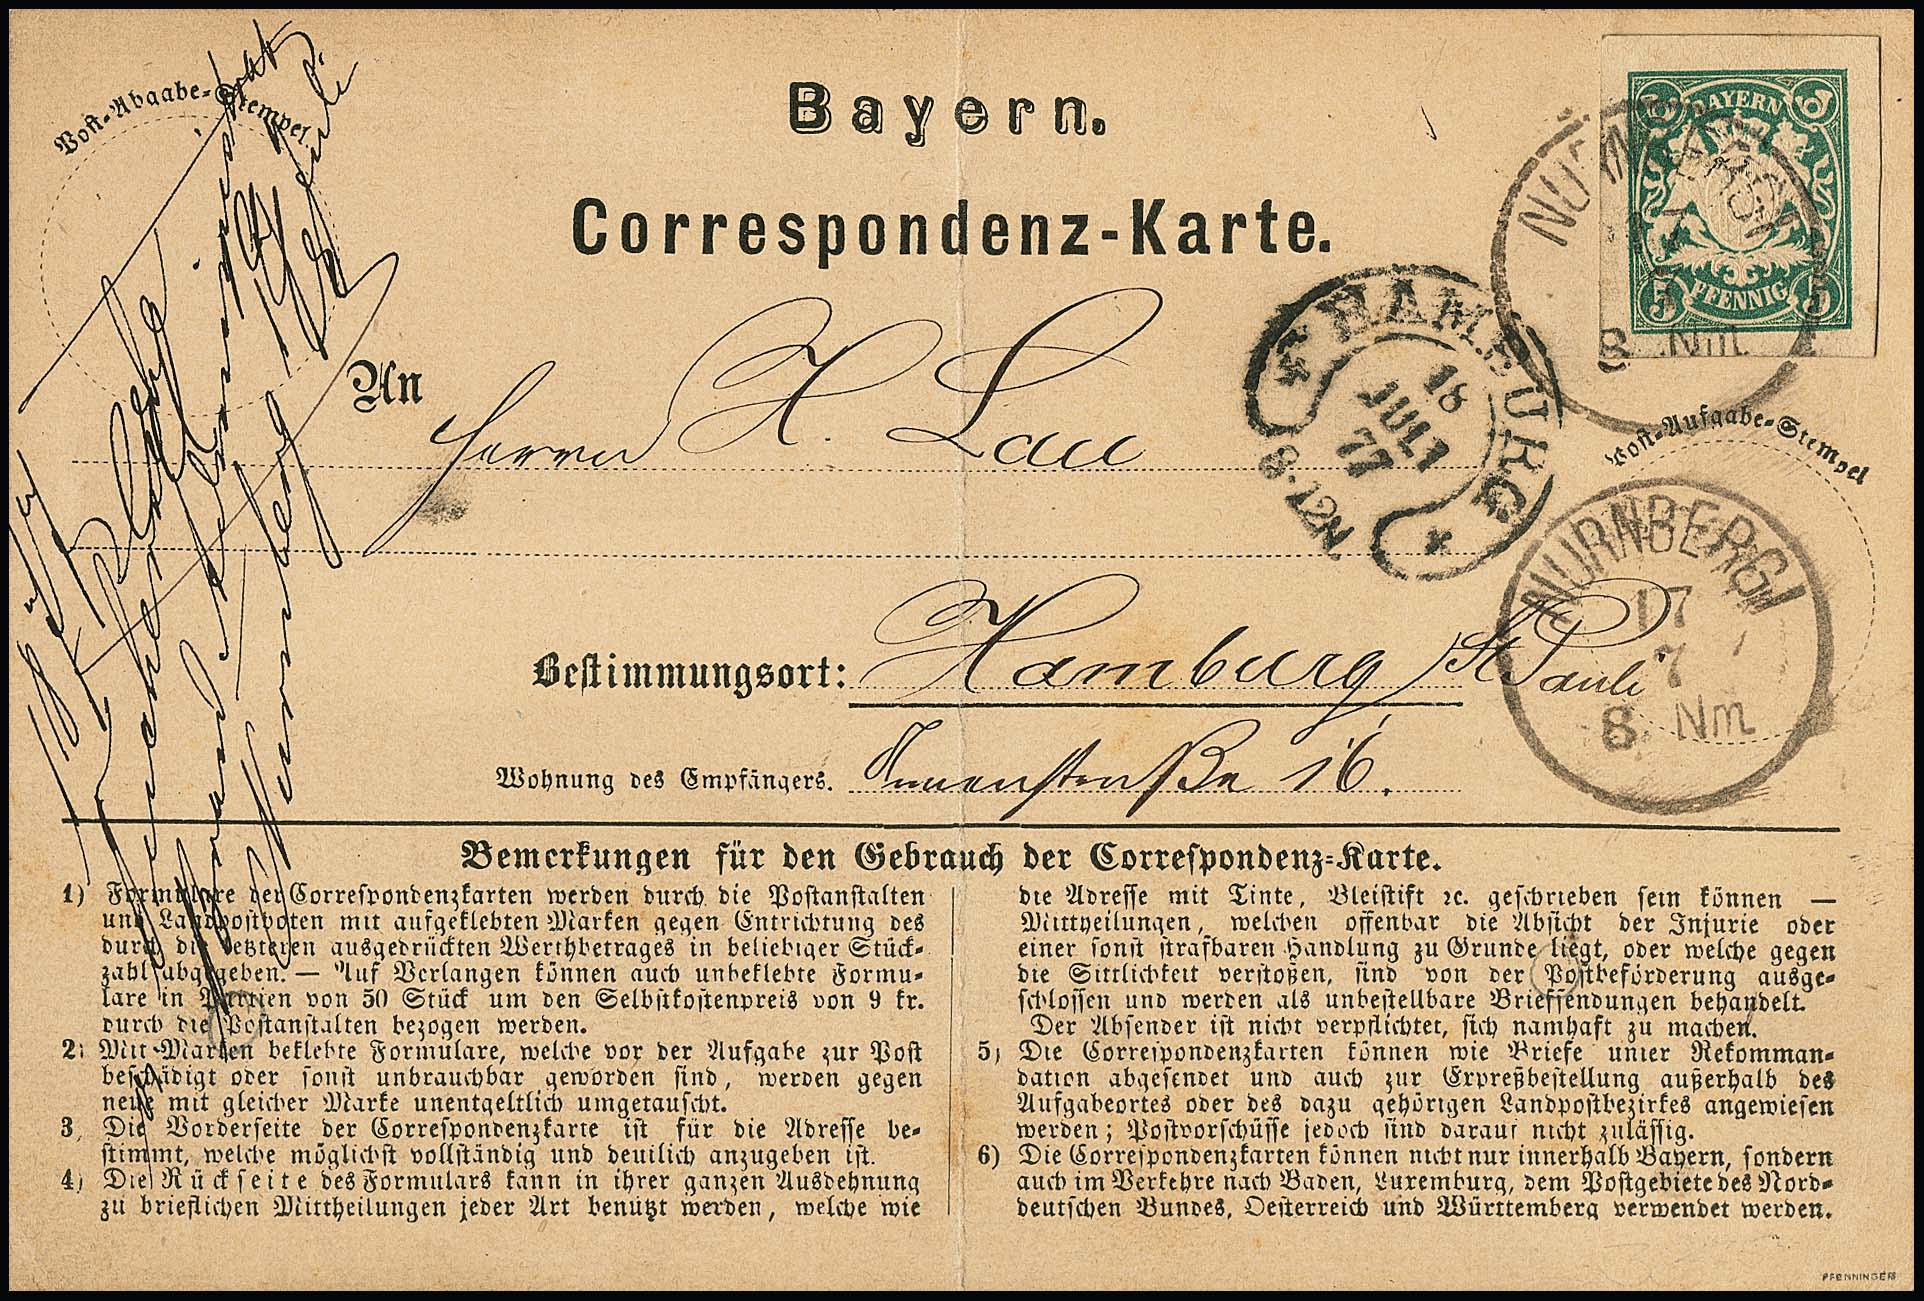 Bayern.
Correspondenz-Karte.
Post-Abgabe-Stempel.
BAYERN
5 PFENNIG 5
NÜRNBERG I
17
7
8 Nm
HAMBURG
18
JULI
77
8-12N.
Post-Aufgabe-Stempel
NÜRNBERG I
17
7
8 Nm
An
Herrn H. Lau
Bestimmungsort: Hamburg / St Pauli
Wohnung des Empfängers. straße 16.
Nürnberg
Bemerkungen für den Gebrauch der Correspondenz-Karte.
1) Formulare der Correspondenzkarten werden durch die Postanstalten
und Landpostboten mit aufgeklebten Marken gegen Entrichtung des
durch die letzteren ausgedrückten Werthbetrages in beliebiger Stück-
zahl abgegeben. — Auf Verlangen können auch unbeklebte Formu-
lare in Partien von 50 Stück um den Selbstkostenpreis von 9 kr.
durch die Postanstalten bezogen werden.
2) Mit Marken beklebte Formulare, welche vor der Aufgabe zur Post
beschädigt oder sonst unbrauchbar geworden sind, werden gegen
neue mit gleicher Marke unentgeltlich umgetauscht.
3) Die Vorderseite der Correspondenzkarte ist für die Adresse be-
stimmt, welche möglichst vollständig und deutlich anzugeben ist.
4) Die Rückseite des Formulars kann in ihrer ganzen Ausdehnung
zu brieflichen Mittheilungen jeder Art benützt werden, welche wie
die Adresse mit Tinte, Bleistift ec. geschrieben sein können —
Mittheilungen, welchen offenbar die Absicht der Injurie oder
einer sonst strafbaren Handlung zu Grunde liegt, oder welche gegen
die Sittlichkeit verstoßen, sind von der Postbeförderung ausge-
schlossen und werden als unbestellbare Briefsendungen behandelt.
Der Absender ist nicht verpflichtet, sich namhaft zu machen.
5) Die Correspondenzkarten können wie Briefe unter Rekomman-
dation abgesendet und auch zur Expreßbestellung außerhalb des
Aufgabeortes oder des dazu gehörigen Landpostbezirkes angewiesen
werden; Postvorschüsse jedoch sind darauf nicht zulässig.
6) Die Correspondenzkarten können nicht nur innerhalb Bayern, sondern
auch im Verkehre nach Baden, Luxemburg, dem Postgebiete des Nord-
deutschen Bundes, Oesterreich und Württemberg verwendet werden.
PFENNINGER